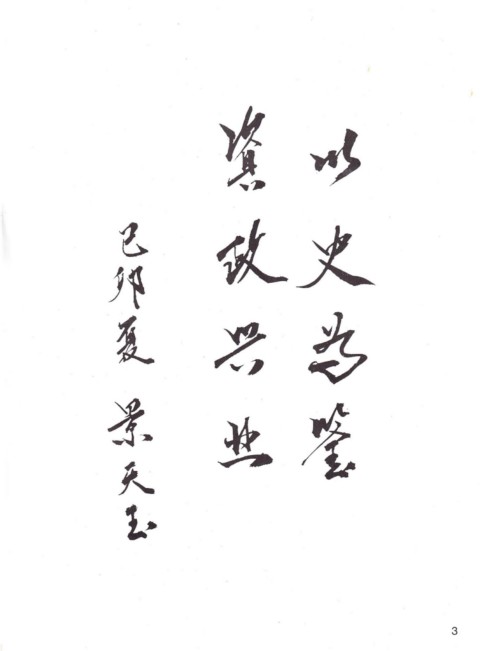 以史为鉴
資政兴业
己卯夏 景天玉
3